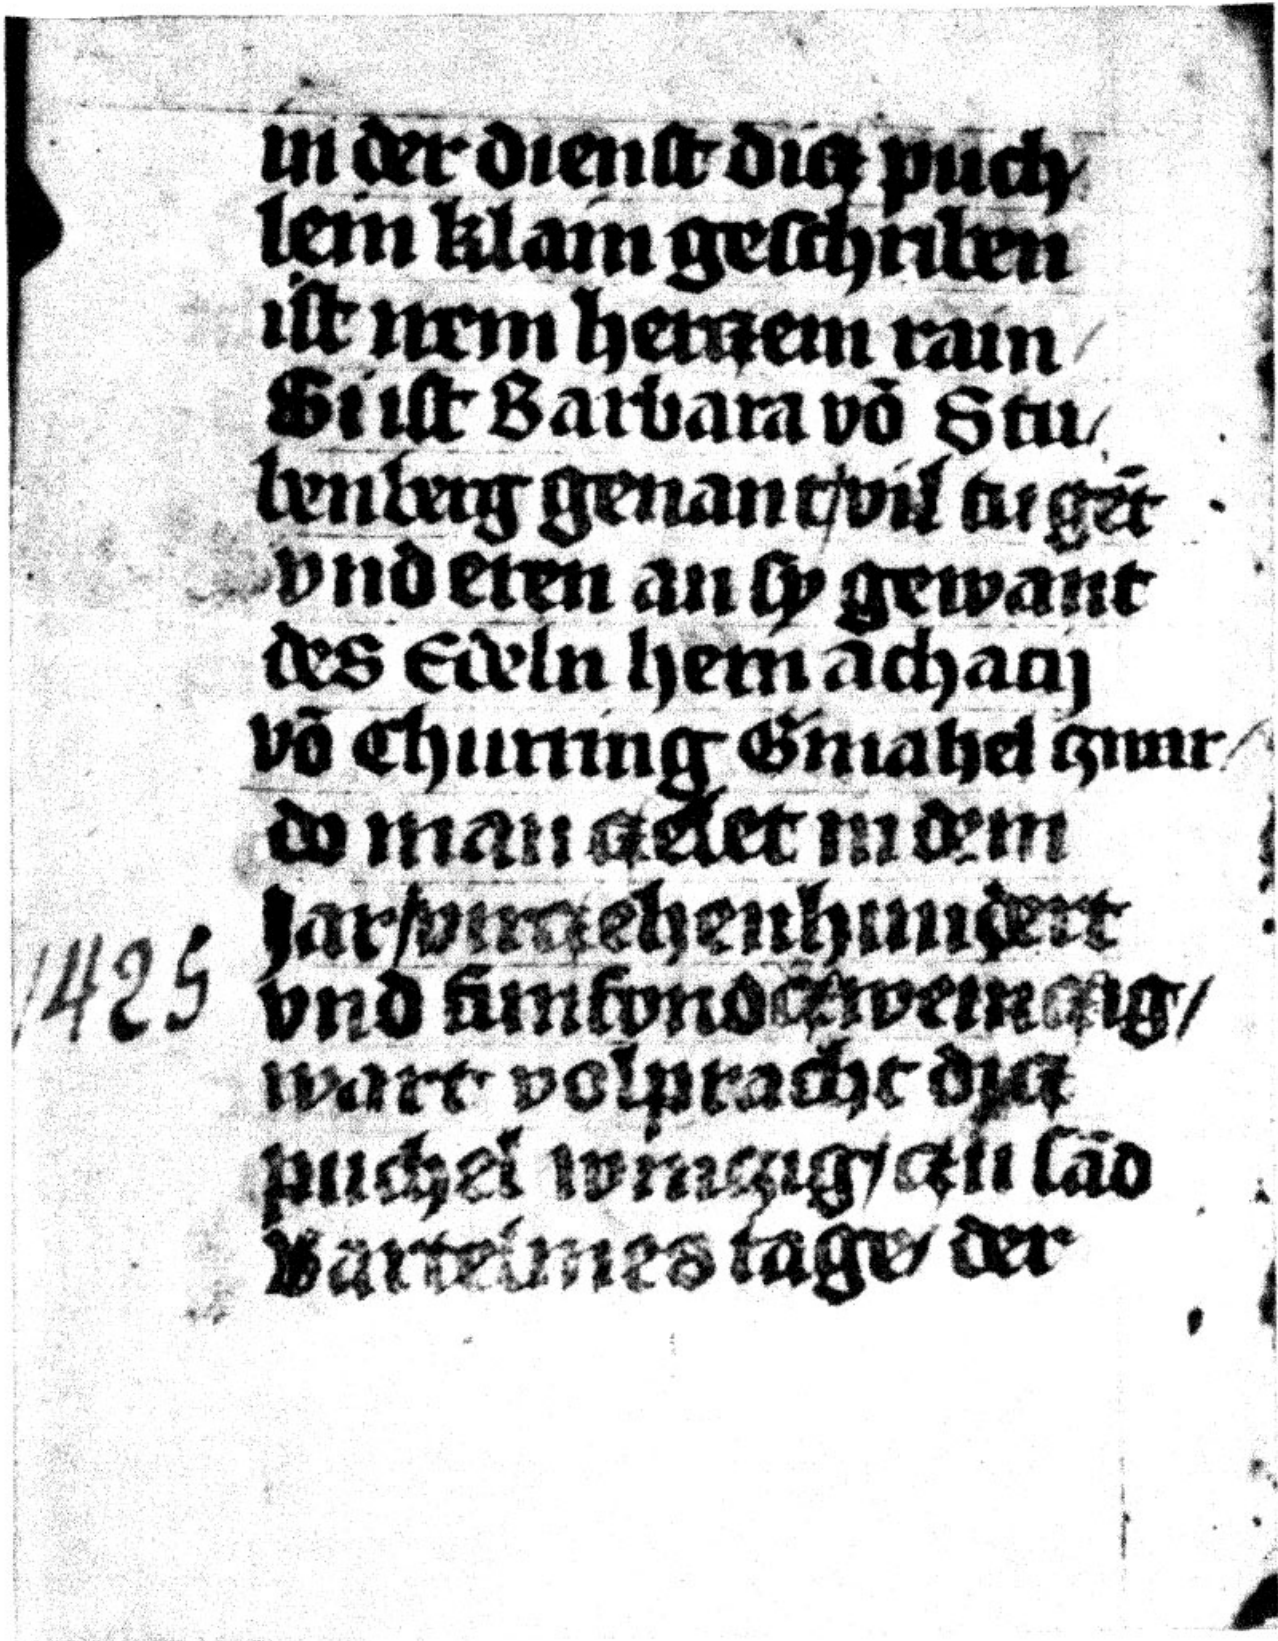 in der dienst dicz puch
lein klain geschriben
ist irem herczem rain /
Si ist Barbara võ Stu/
benberg genant/vil tugẽt
vnd eren an sy gewant
des Edeln hern achacij
võ Churring Gmahel
do man czelet in dem
Jar/virczehenhundert
1425 vnd funfvndczweinczig/
wart volpracht dicz
puchel winczig/czu sãd
Bartelmes tage/ der